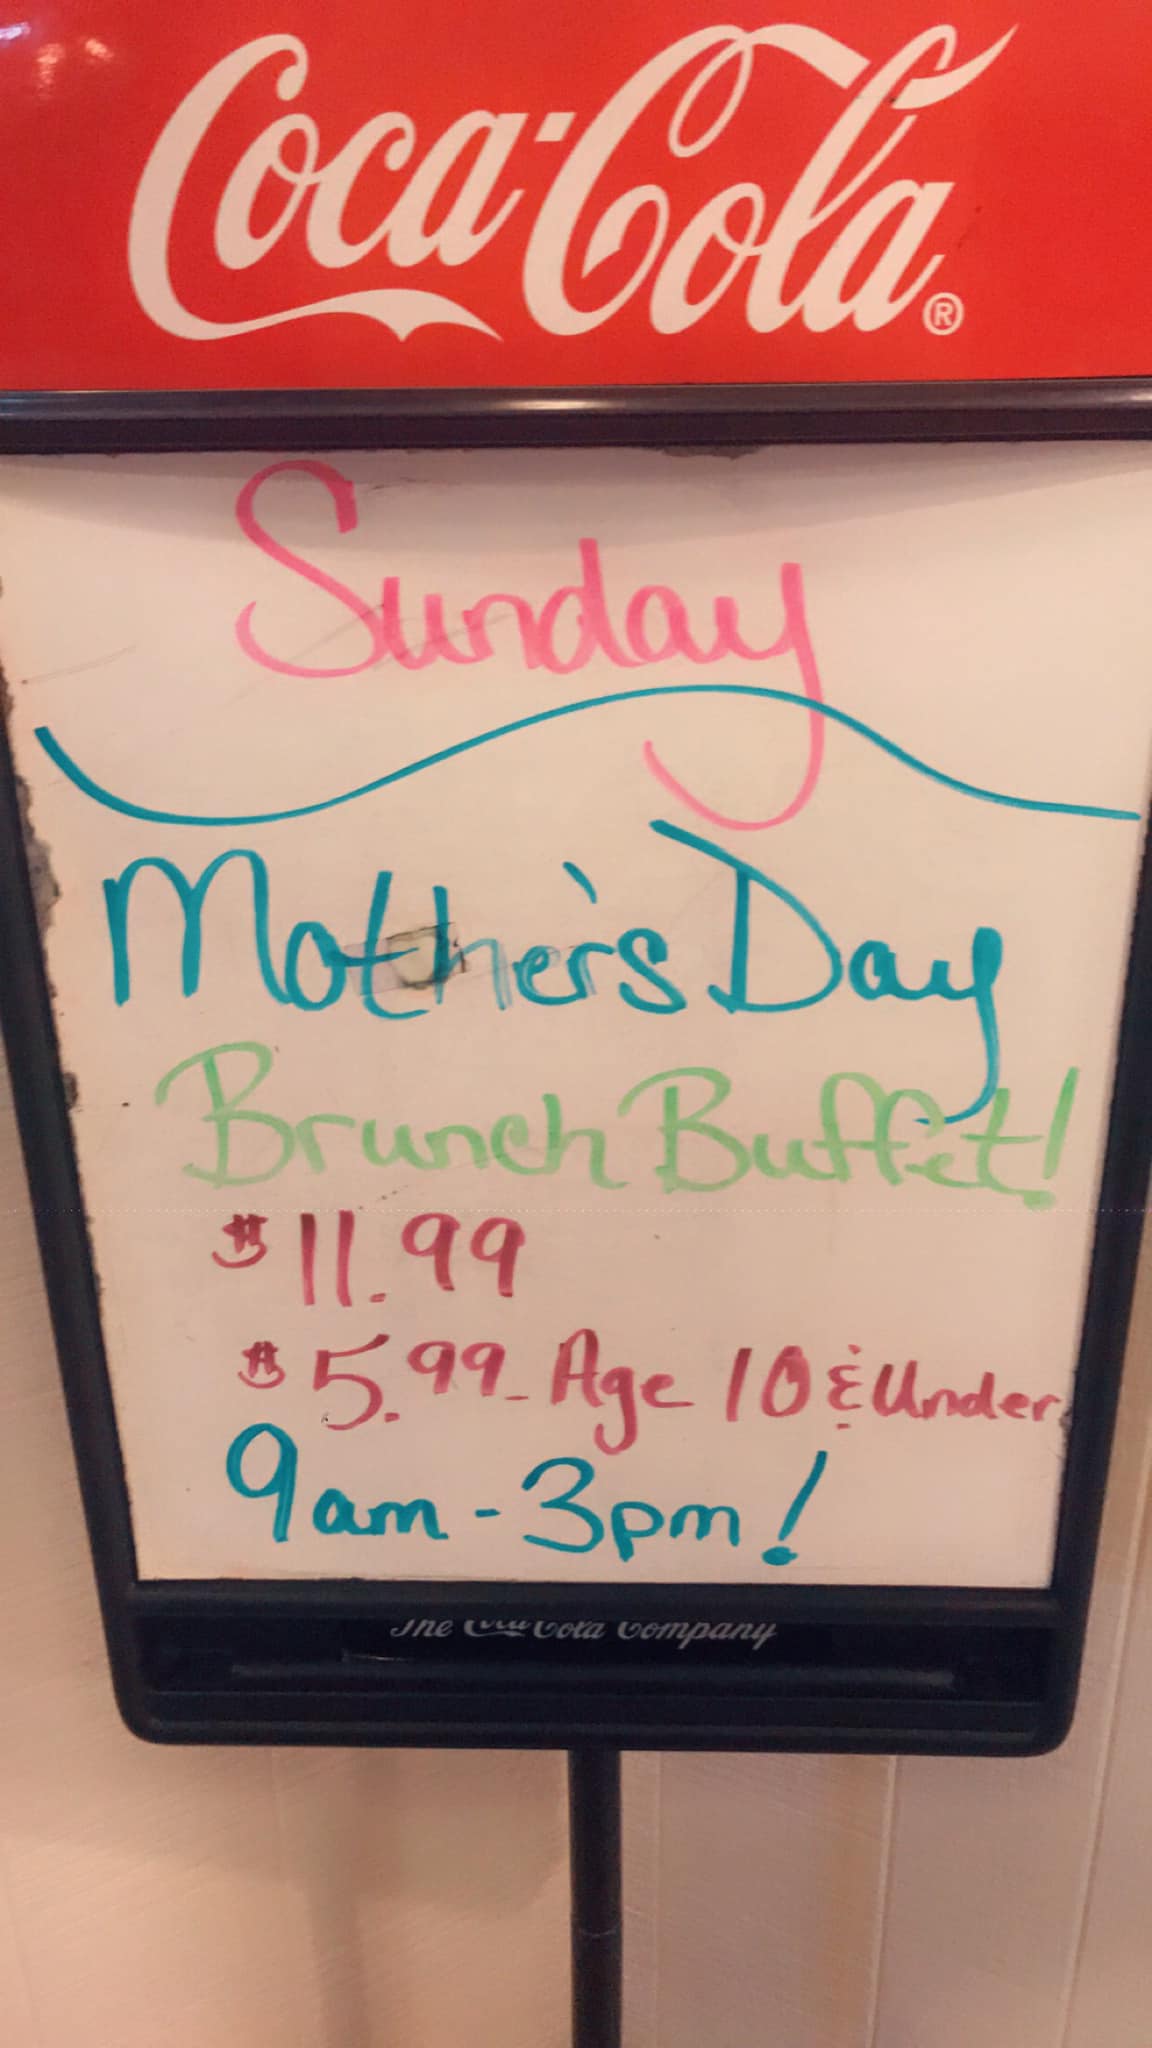 Coca-Cola®
Sunday
Mother's Day
Brunch Buffet!
$11.99
$5.99 - Age 10 & Under
9am - 3pm!
The Coca-Cola Company